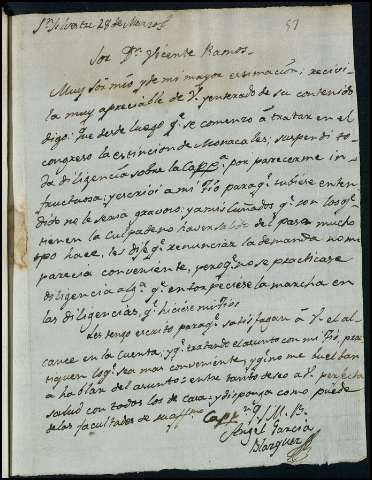 Sn Silvestre 28 de Marzo
51
Sor Dn Vicente Ramos
Muy Sor mio y de mi mayor estimacion; recivi
la muy apreciable de V. y enterado de su contenido
digo: que desde luego qe se comenzo á tratar en el
congreso la estincion de Monacales; suspendi to-
da diligencia sobre la Capa por parecerme in-
fructuosa; y escrivi a mi Tio para qe tubiese enten
dido no le seria gravoso: ya mis cuñados qe son los qe
tienen la culpa de no haver salido del paso mucho
tpo hace, les dije qe renunciar la demanda no me
parecia conveniente, pero qe no se practicase
diligencia alga qe entorpeciese la marcha en
las diligencias, qe hiciere mi Tio
Les tengo escrito para qe satisfagan á V. el al-
cance en la cuenta; y qe tratando el asunto con mi Tio, prac
tiquen lo qe sea mas conveniente, y qe no me buelban
a hablar del asunto: entre tanto deseo a V. perfecta
salud con todos los de casa: y disponga como puede
de las facultades de su affmo Capn Q. S. M. B.
Angel Garcia
Blazquez